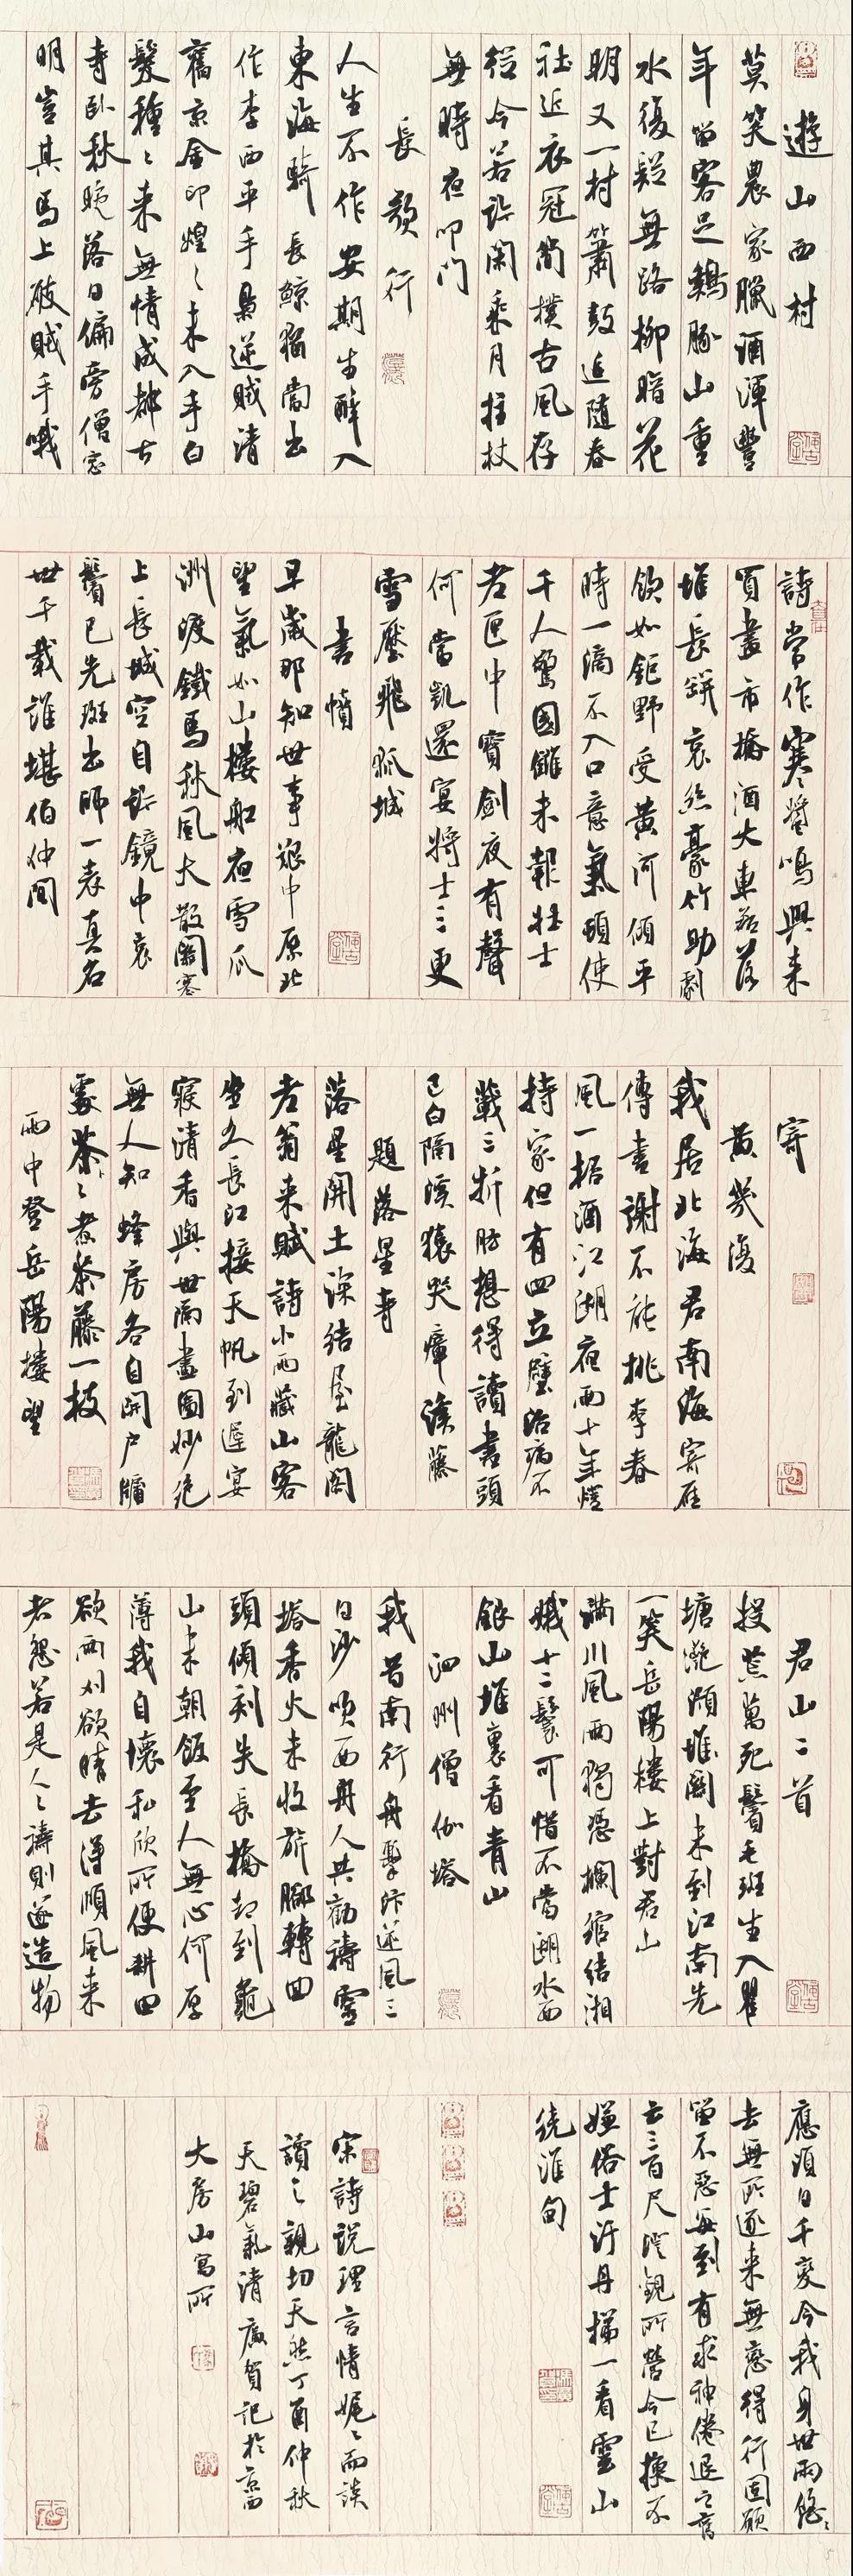 遊山西村
莫笑農家臘酒渾豐
年留客足鷄豚山重
水復疑無路柳暗花
明又一村簫鼓追隨春
社近衣冠簡樸古風存
從今若許閑乘月拄杖
無時夜叩門
長歌行
人生不作安期生醉入
東海騎長鯨猶當出
作李西平手梟逆賊清
舊京金印煌〻未入手白
髮種〻來無情成都古
寺臥秋晚落日偏旁僧窓
明豈其馬上破賊手哦
詩常作寒螿鳴興來
買盡市橋酒大車磊落
堆長缾哀絲豪竹助劇
飲如鉅野受黃河傾平
時一滴不入口意氣頓使
千人驚國讎未報壯士
老匣中寶劍夜有聲
何當凱還宴將士三更
雪壓飛狐城
書憤
早歲那知世事艱中原北
望氣如山樓船夜雪瓜
洲渡鐵馬秋風大散關塞
上長城空自許鏡中衰
鬢已先斑出師一表真名
世千載誰堪伯仲間
寄
黃幾復
我居北海君南海寄雁
傳書謝不能桃李春
風一桮酒江湖夜雨十年燈
持家但有四立壁治病不
蘄三折肱想得讀書頭
已白隔溪猿哭瘴溪藤
題落星寺
落星開士深結屋龍閣
老翁來賦詩小雨藏山客
坐久長江接天帆到遲宴
寢清香與世隔畫圖妙絕
無人知蜂房各自開戶牖
處〻煮茶藤一枝
雨中登岳陽樓望
君山二首
投荒萬死鬢毛斑生入瞿
塘灔澦堆關未到江南先
一笑岳陽樓上對君山
滿川風雨獨憑欄綰結湘
娥十二鬟可惜不當湖水面
銀山堆裏看青山
泗州僧伽塔
我昔南行舟擊汴逆風三
日沙吹面舟人共勸禱靈
塔香火未收旂腳轉回
頭傾刻失長橋却到龜
山未朝飯至人無心何厚
薄我自懷私欣所便耕田
欲雨刈欲晴去得順風來
者怨若是人〻禱則遂造物
應須日千變今我身世兩悠〻
去無所逐來無戀得行固願
留不惡每到有求神倦退之舊
云三百尺澄觀所營今已換不
嫌俗士汙丹梯一看雲山
繞淮甸
宋詩說理言情娓〻而談
讀之親切天然丁酉仲秋
天碧氣清廣賀記於京西
大房山寓所